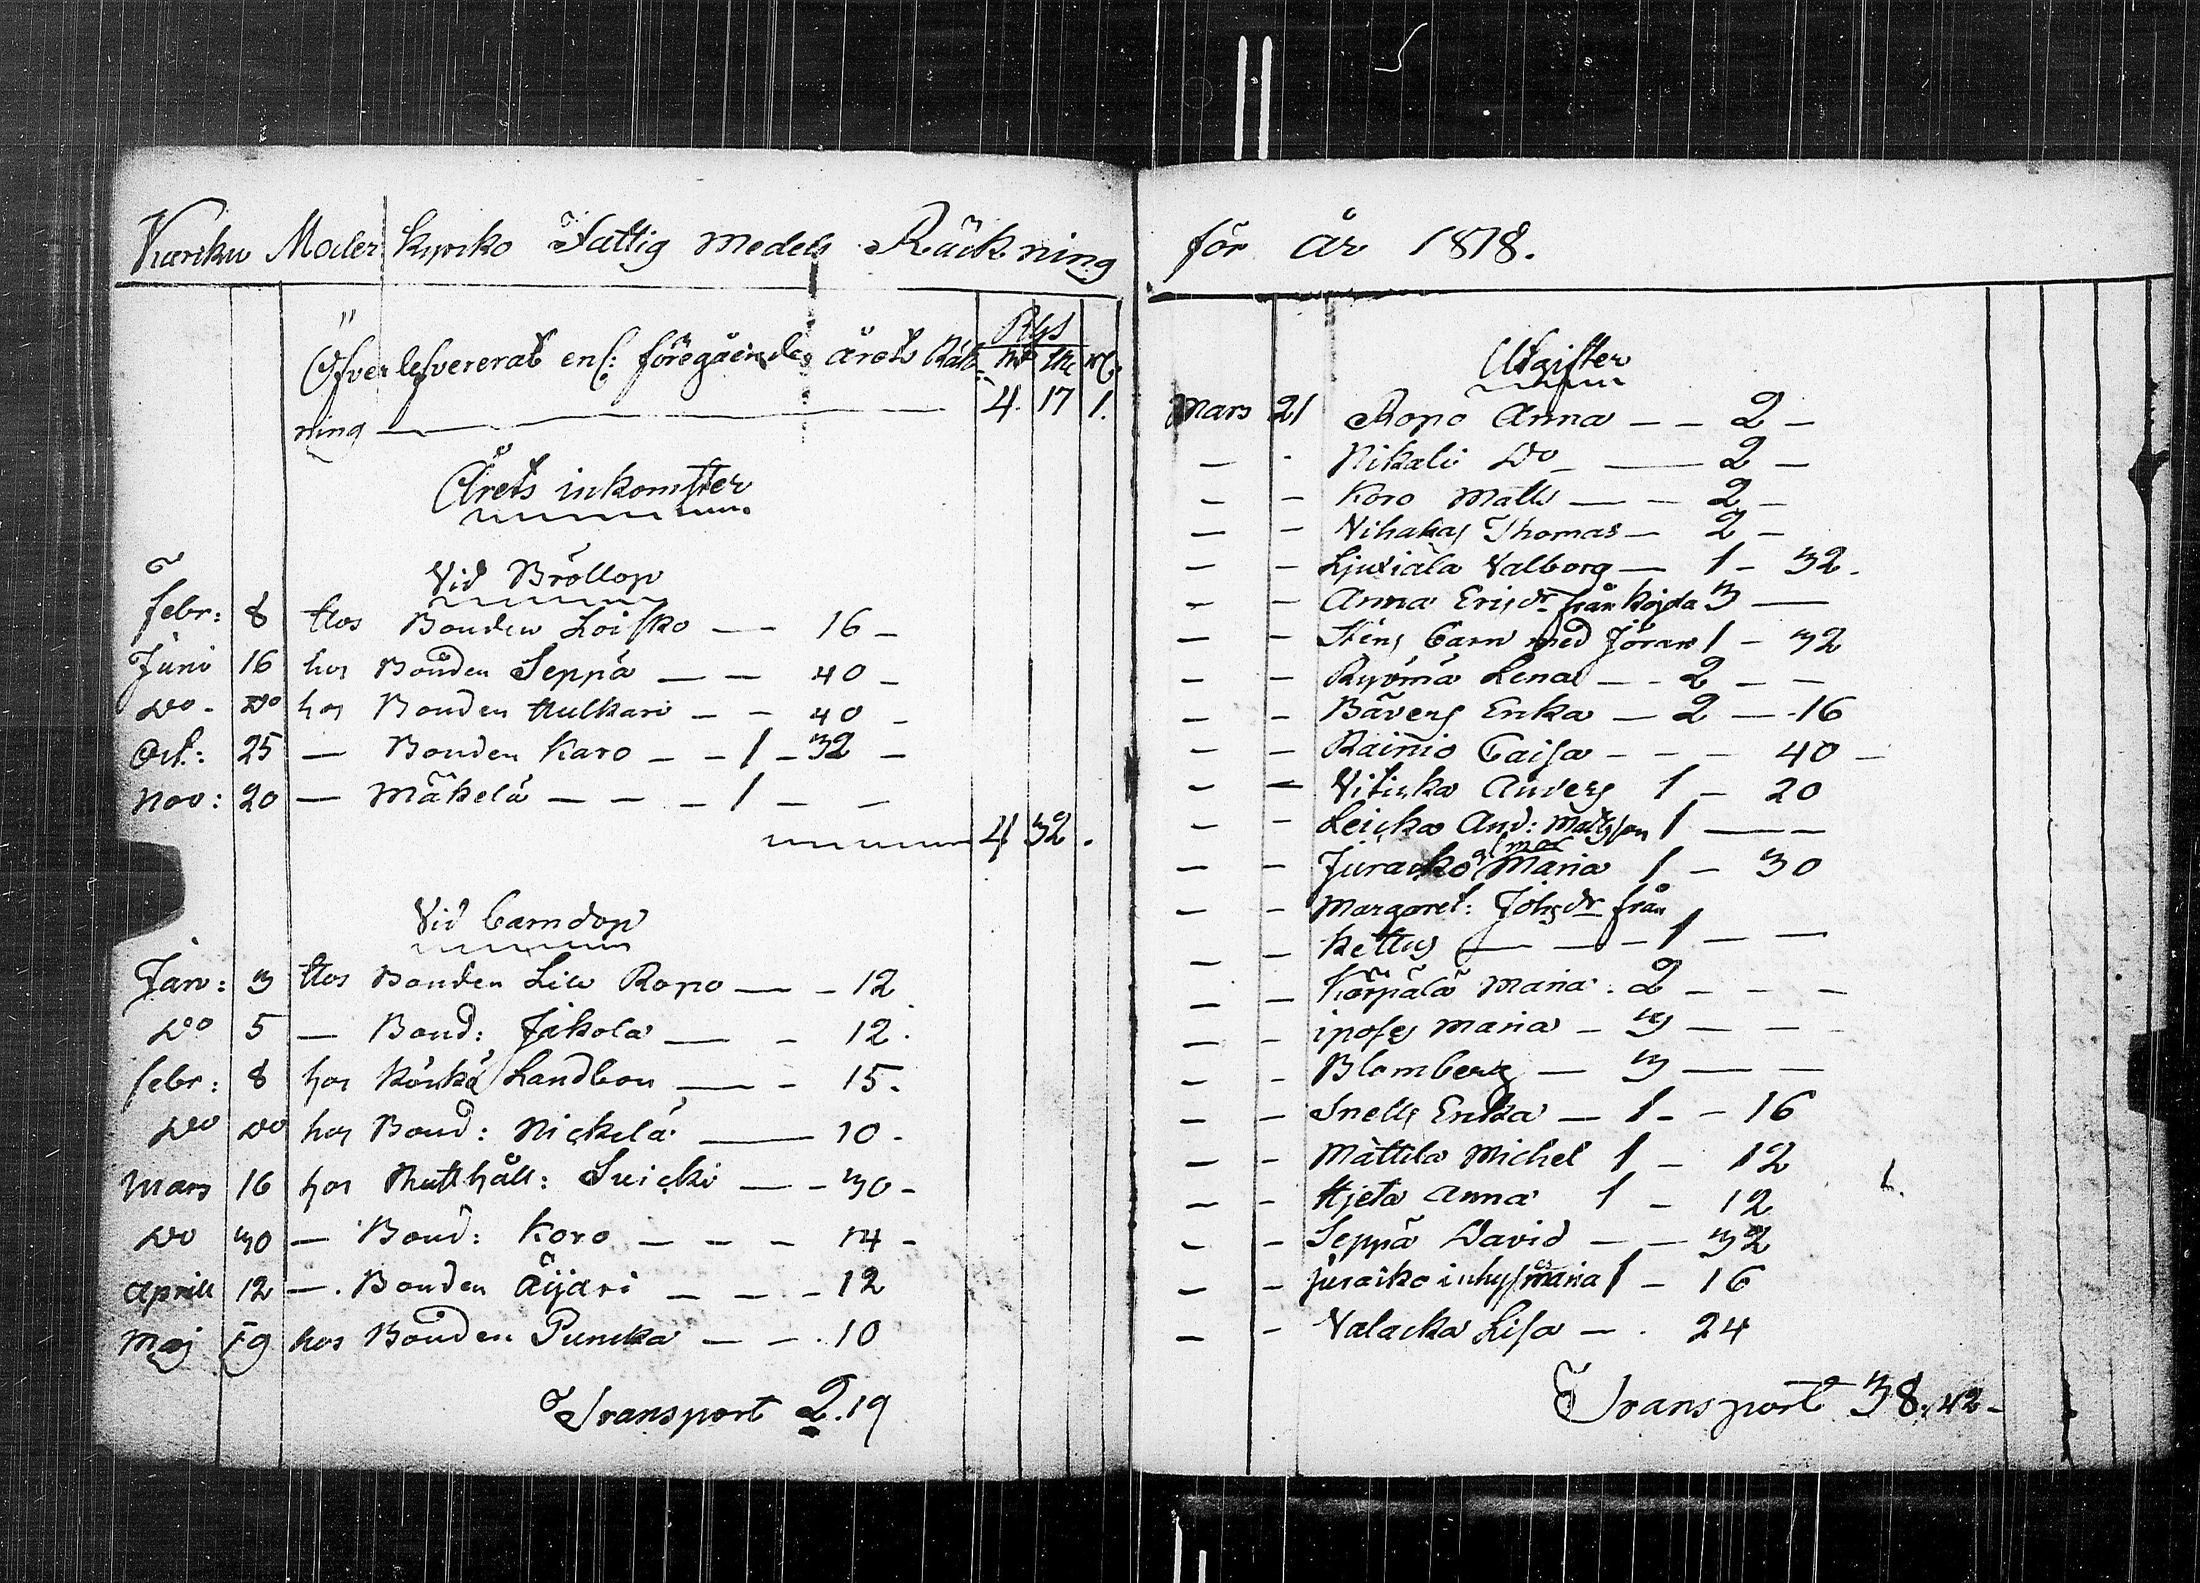 Karcku Moder kyrko Fattig medels Räckning
Rgs
Öfverlefvererat enl: föregående årets Räk-
ning — 4. 17 1.
Årets inkomster
Vid Bröllop
febr: 8 Hos Bonden Loisko — — 16 —
Juni 16 hos Bonden Seppä — — 40 —
Do - Do hos Bonden Hulkari — — 40 —
Oct: 25 — Bonden Karo — — 1 — 32 —
Nov: 20 — Mäkelä — — — 1 — —
4 32.
Vid barndop
Jan: 3 Hos Bonden Lill Ropo — — 12
Do 5 — Bond: Jåkola — — 12.
febr: 8 hos Körkä Landbon — — 15.
Do Do hos Bond: Nickelä — 10 -
Mars 16 hos Rusthåll: Suicki — — 30 -
Do 30 — Bond: Koro — — — 14 -
Aprill 12 — . Bonden Äijäri — — — 12
Maj 19 hos Bonden Puncka — — . 10
Transport 2.19
för år 1818.
Utgifter
Mars 21 Ropo Anna — — 2 —
— - Nikali Do — — 2 —
— — Koro Matts — — 2 —
— — Vihakas Thomas — 2 —
— — Ljuxiala Valborg — 1 — 32.
— — Anna Ericsdr från Kojola 3 —
— — Sténs barn med Jöran 1 — 32
— — Ryömä Lena — — 2 — —
— — Bävers Erika — 2 — .16
— — Rainio Caisa — — — 40 —
— — Anders 1 — 20
— — Leicka And: Mattsson 1 — —
— — Juracko Maria 1 — 30
— — Margaret: Johsdr från
— — Kettus — — — 1 — —
— — Kärpälä Maria . 2 — — —
— — iposes Maria — 3 — — —
— — Blomberg — 3 — —
— — Snells Erika — 1 — — 16
— — Mättila Michel 1 — 12
— — Hjeta Anna 1 — 12
— — Seppä David — — 32
— — juracko inhyses Maria 1 — 16
— — Valacka Lisa — . 24
Transport 38.42 -